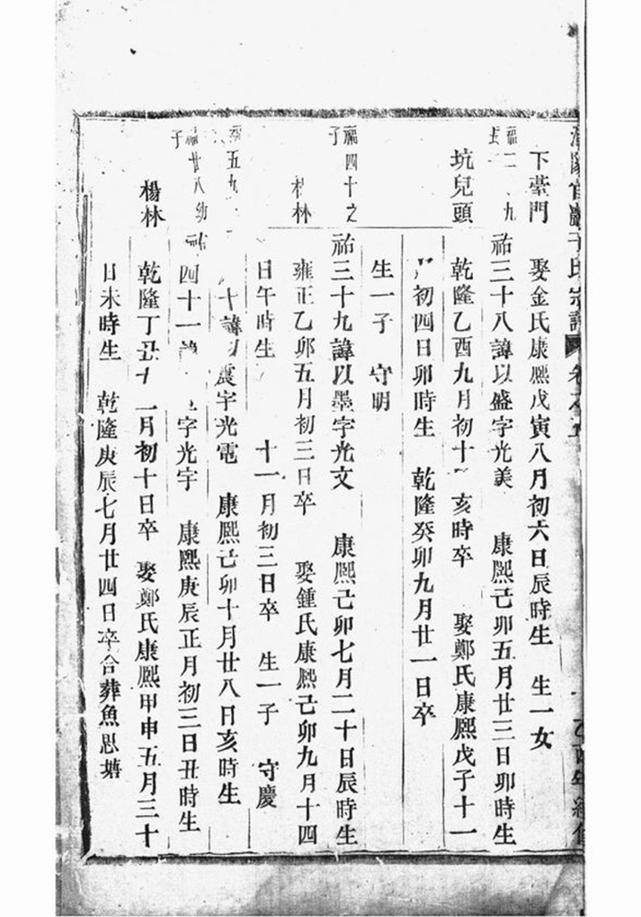 陽官巖 氏宗譜 卷之
下臺門 娶金氏康熙戊寅八月初六日辰時生 生一女
福二 九 長 祐三十八諱以盛字光美 康熙己卯五月廿三日卯時生
坑兒頭 乾隆乙酉九月初十 亥時卒 娶鄭氏康熙戊子十一
初四日卯時生 乾隆癸卯九月廿一日卒
生一子 守明
福四十之子 祐三十九諱以墨字光文 康熙己卯七月二十日辰時生
林 雍正乙卯五月初三日卒 娶鍾氏康熙己卯九月十四
日午時生 十一月初三日卒 生一子 守慶
五九 十諱以震字光電 康熙己卯十月廿八日亥時生
福廿八幼子 祐四十一諱 字光宇 康熙庚辰正月初三日丑時生
楊林 乾隆丁丑十一月初十日卒 娶鄭氏康熙甲申五月三十
日未時生 乾隆庚辰七月廿四日卒合葬魚思塘